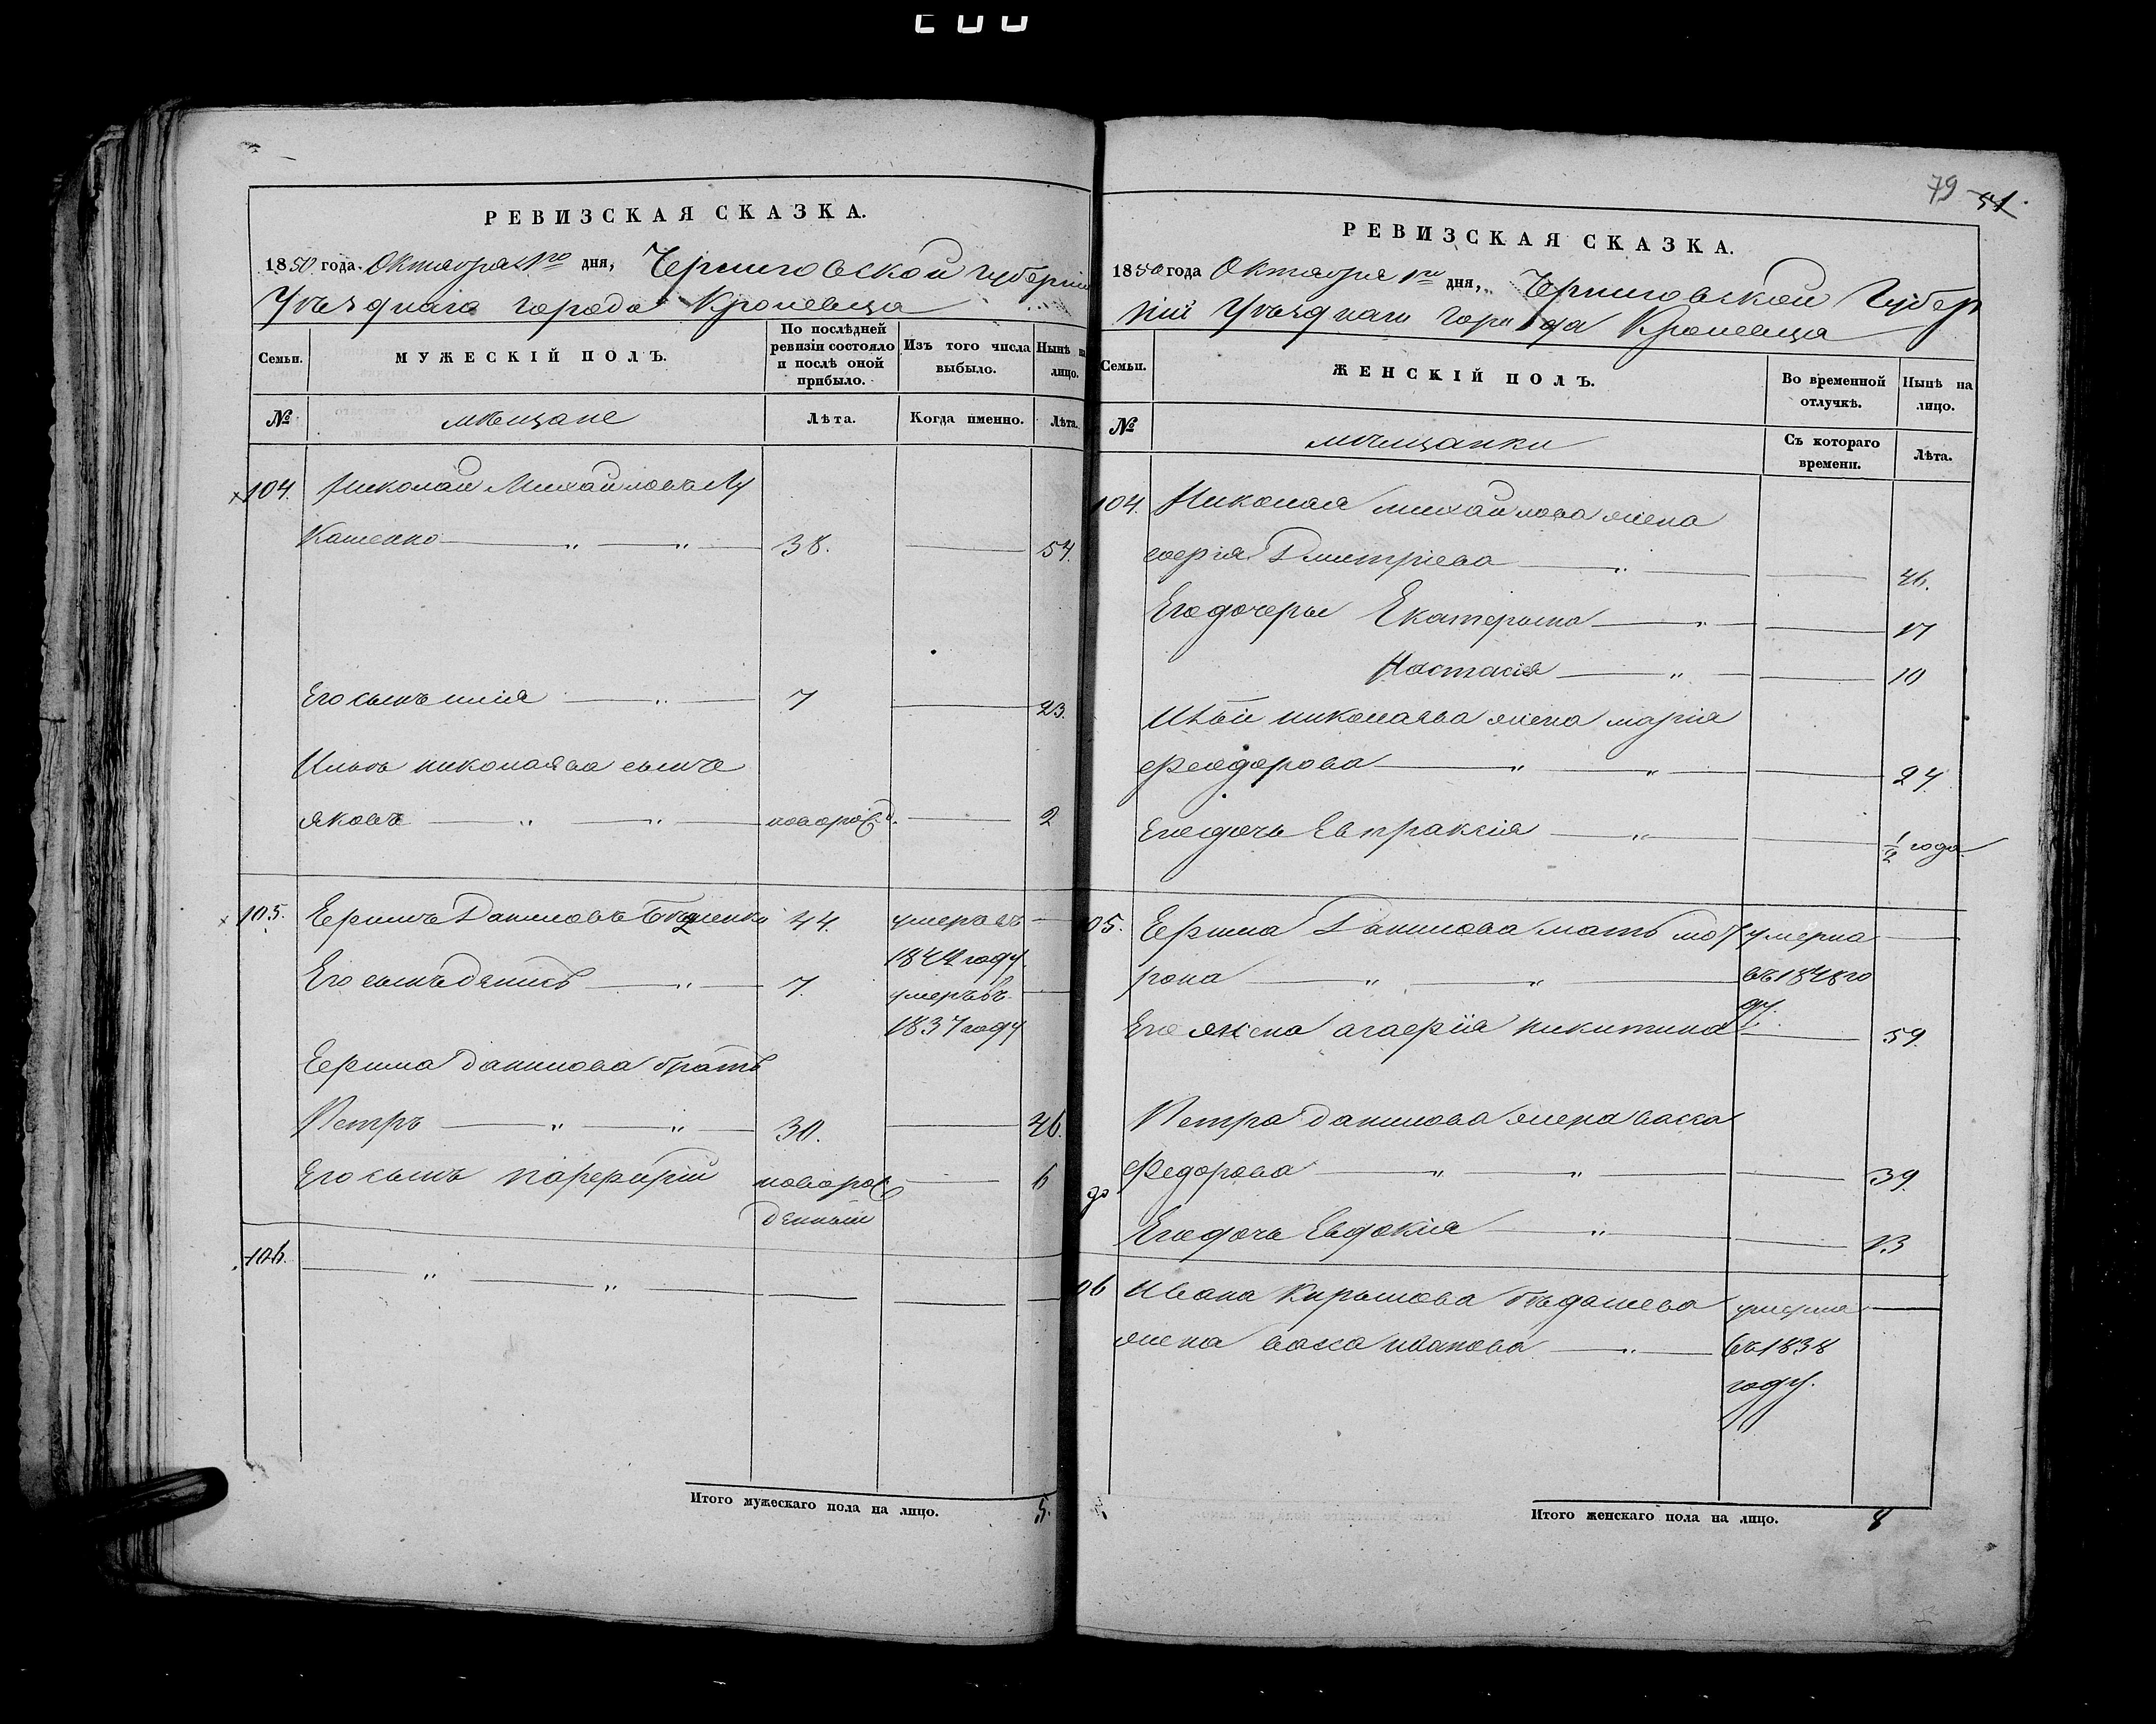 РЕВИЗСКАЯ СКАЗКА.
1850 года Октября 1го дня, Черниговской губерніи
Уѣзднаго города Кролевца
Семьи.
МУЖЕСКІЙ ПОЛЪ.
По послѣдней ревизіи состояло и послѣ оной прибыло.
Изъ того числа выбыло.
Нынѣ на лицо.
№
мѣщане
Лѣта.
Когда именно.
Лѣта.
104. Николай Михайловъ Лу
Кашенко 38. 54.
Его сынъ илія 7 23.
Ильи николаява сынъ
яковъ новорожд. 2
105. Ефимъ Даниловъ 44. умеръ въ
1842 году
Его сынъ денисъ 7. умеръ въ
1837 году
Ефима данилова братъ
Петръ 30. 46.
Его сынъ парфирій новорож 6
денный
106.
Итого мужескаго пола на лицо. 5.
79 51.
РЕВИЗСКАЯ СКАЗКА.
1850 года Октября 1го дня, Черниговской Губер
ніи Уѣзднаго города Кролевца
Семьи.
ЖЕНСКІЙ ПОЛЪ.
Во временной отлучкѣ.
Нынѣ на лицо.
№
мѣщанки
Съ котораго времени.
Лѣта.
104. Николая михайлова жена
Дмитріева 46.
Его дочеры Екатерына 17
Настасія 10
Ильи николаява жена марія
феодорова 24
Его дочь Евпраксія 1/2 года
105. Ефима Данилова мать мот умерла
рона въ 1848 го
ду.
Его жена агафія никитина 59.
Петра данилова жена васса
федорова 39.
Его дочь Евдокія 13
106 Ивана Кирылова бѣдашева умерла
жена васса иванова въ 1838
году.
Итого женскаго пола на лицо. 8